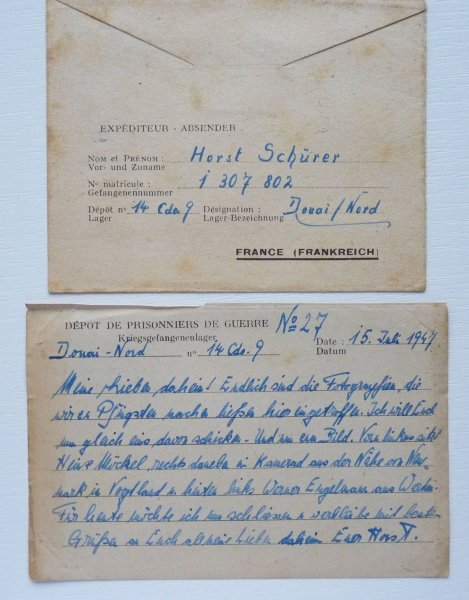 EXPÉDITEUR - ABSENDER
NOM et PRÉNOM : Horst Schürer
Vor- und Zuname
Nº matricule : 1 307 802
Gefangenennummer
Dépôt nº 14 Cdo. 9 Désignation : Douai/Nord
Lager Lager-Bezeichnung
FRANCE (FRANKREICH)
DÉPOT DE PRISONNIERS DE GUERRE Nº 27
Kriegsgefangenenlager
Douai-Nord nº 14 Cdo. 9 Date : 15. Juli 1947
Datum
Meine lieben, daheim! Endlich sind die Fotografien, die
wir Pfingsten machen ließen hier eingetroffen. Ich will Euch
nun gleich eins davon schicken. Und nun zum Bild. Vorn links sitzt
Heinz Möckel, rechts daneben ein Kamerad aus der Nähe von Neu-
mark in Vogtland u. hinten links Werner Engelmann aus
Für heute möchte ich nun schliessen u. verbleibe mit besten
Grüßen an Euch all meine Lieben daheim Euer Horst.